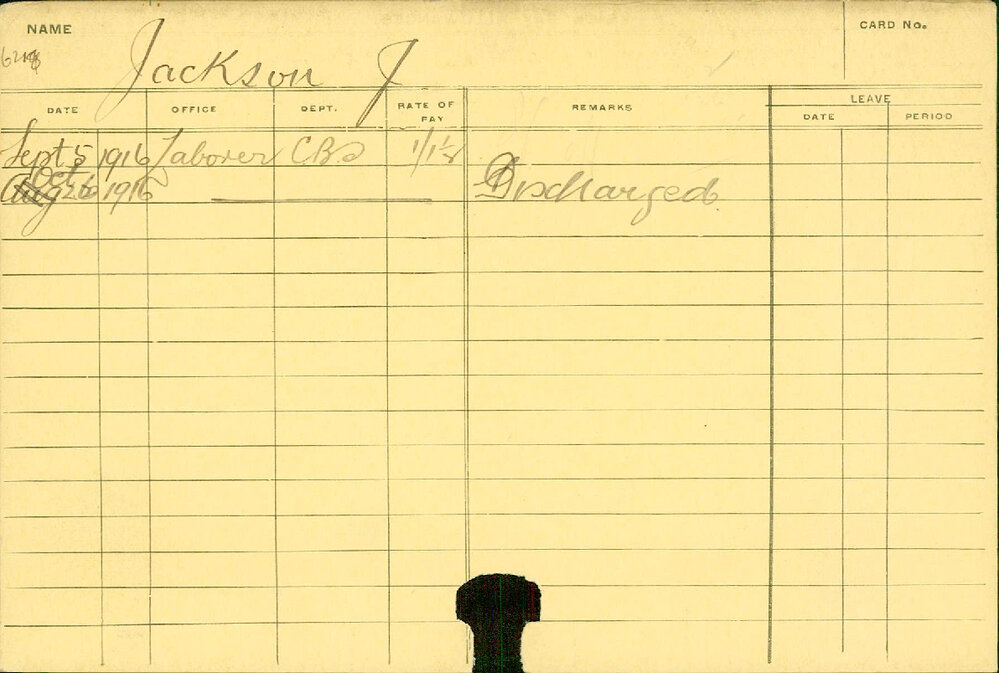 NAME
CARD No.
Jackson J
DATE
OFFICE
DEPT.
RATE OF PAY
REMARKS
LEAVE
DATE
PERIOD
Sept 5 1916 Laborer CBs
Oct
Aug 26 1916 Discharged